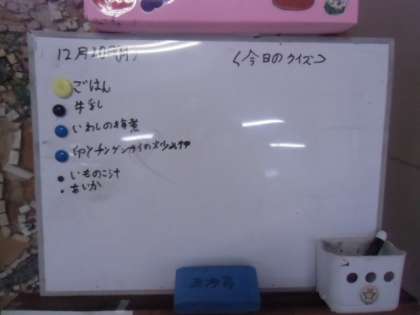 12月20日(月)
<今日のクイズ>
ごはん
牛乳
いわしの梅煮
卵とチンゲンサイの
いものこ汁